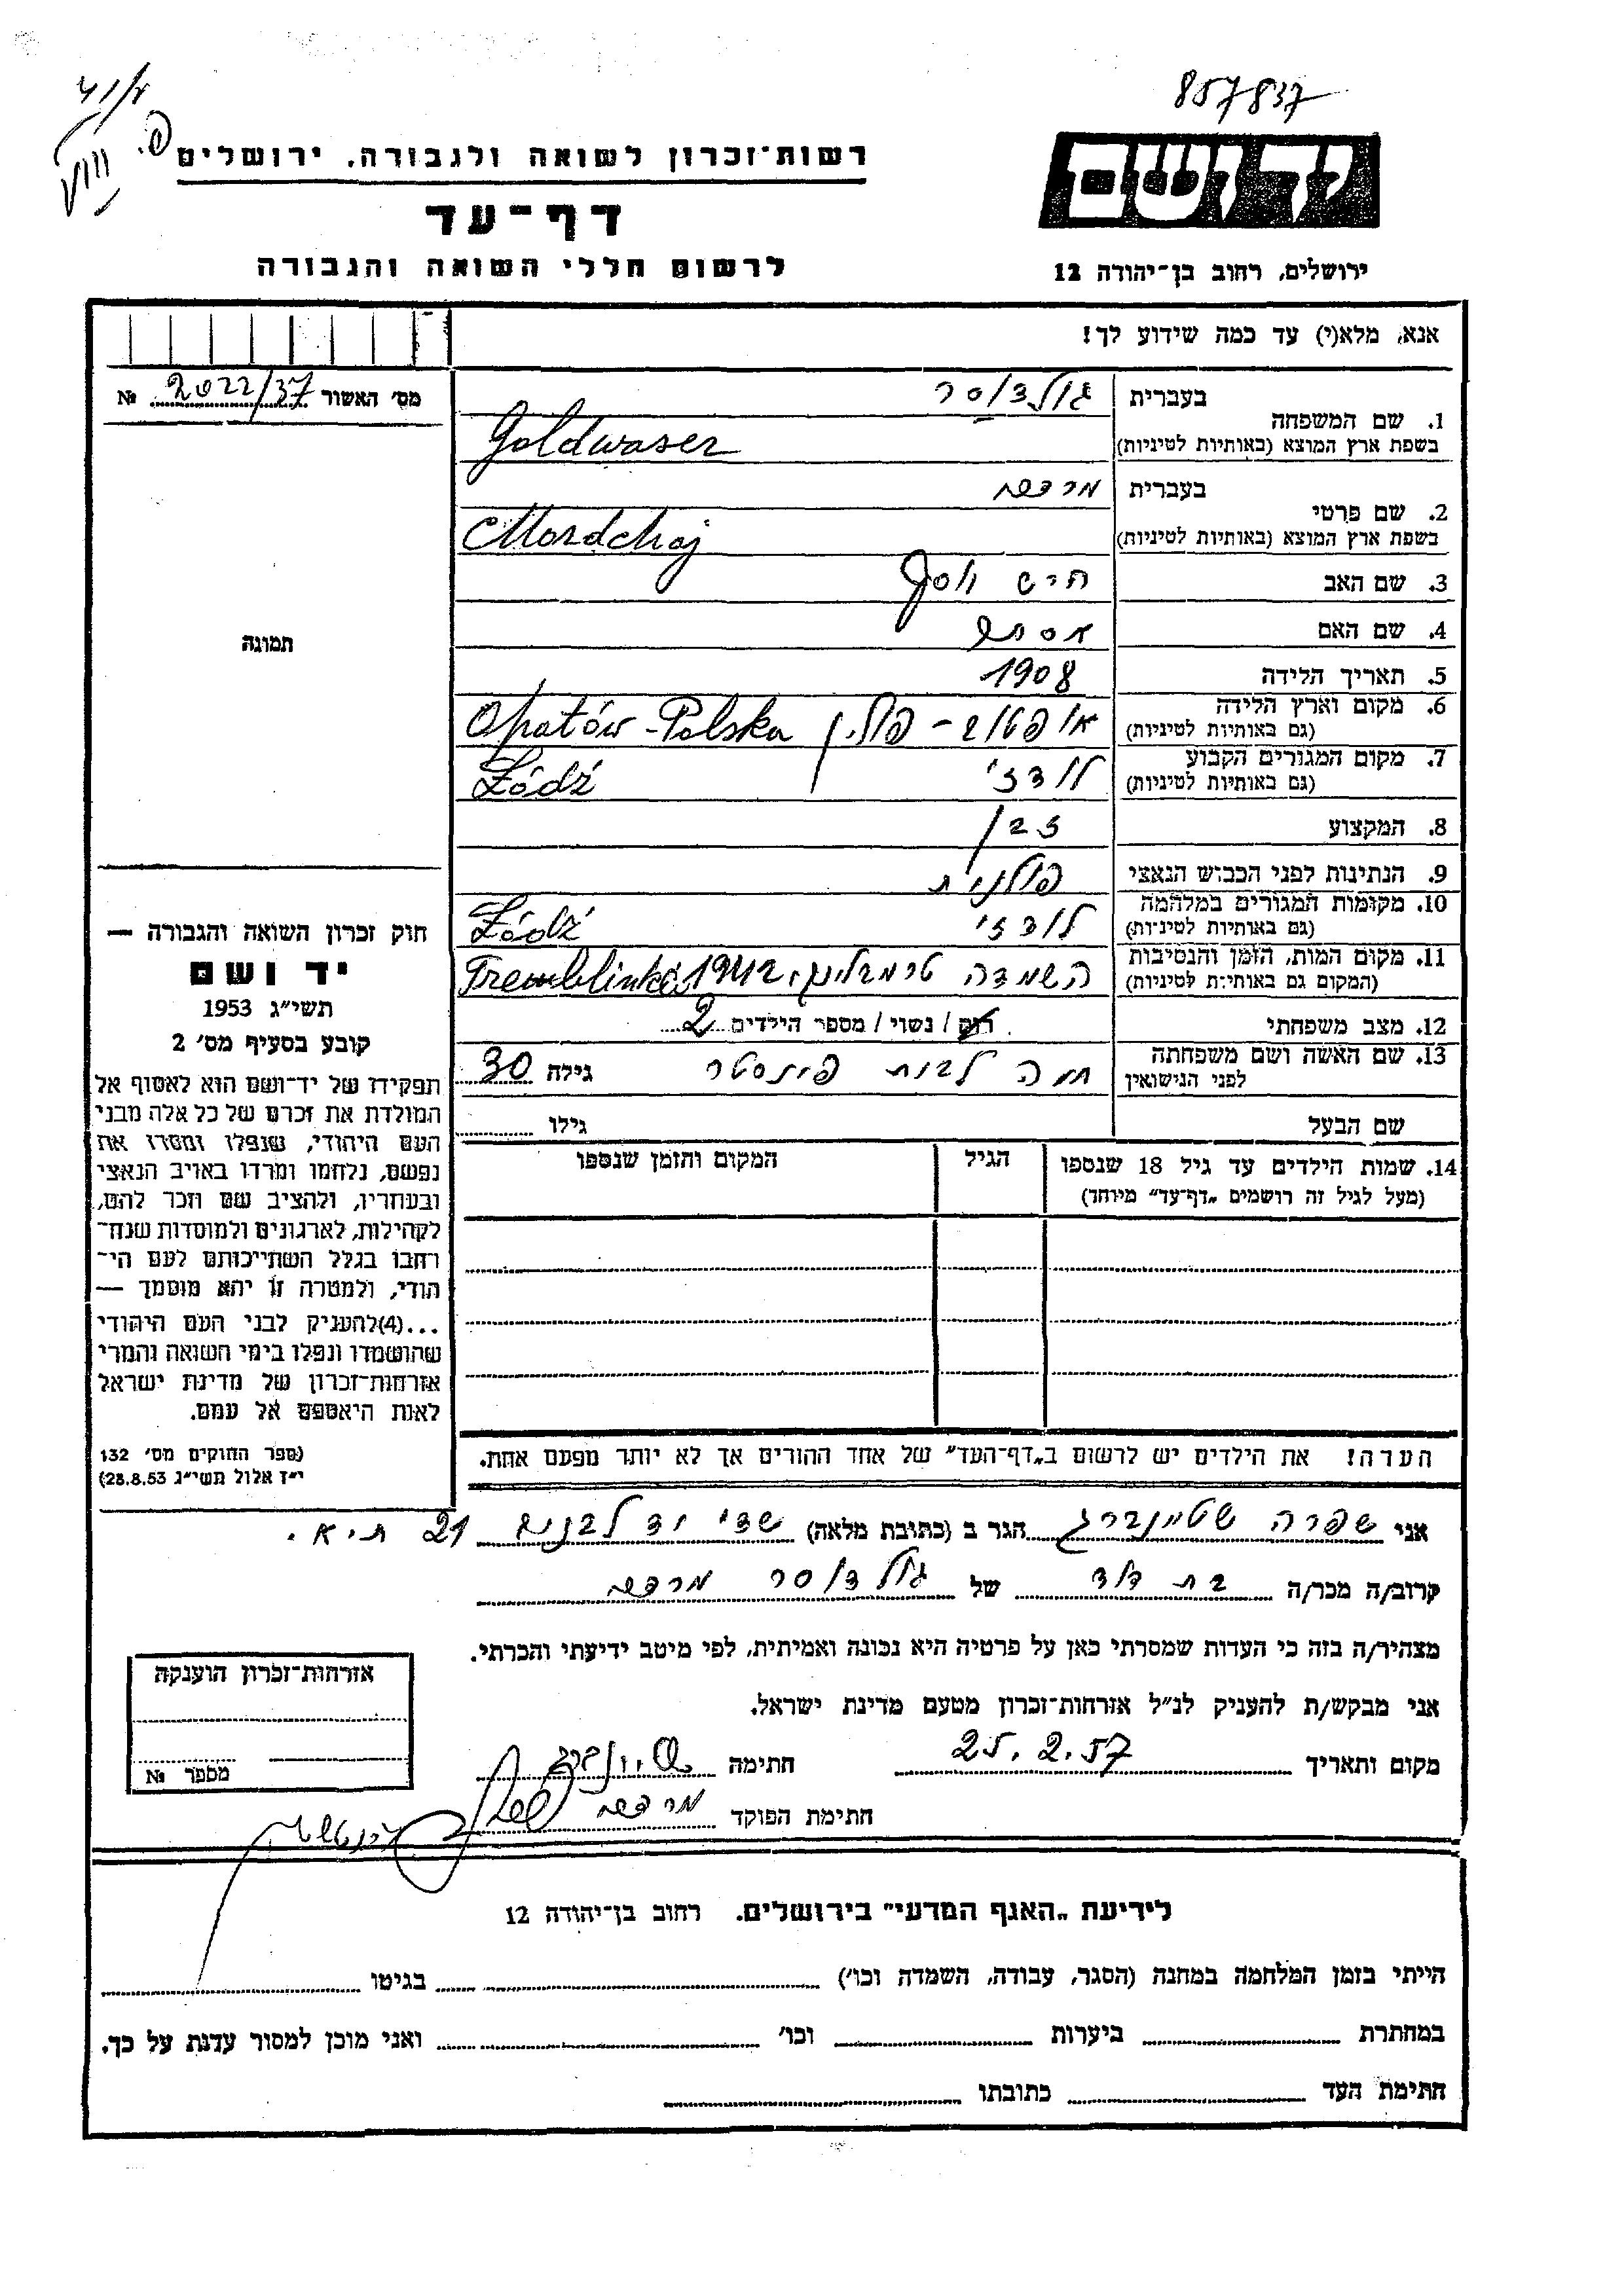 857837
רשות־זכרון לשואה ולגבורה, ירושלים
יד ושם
דף־עד
לרשום חללי השואה והגבורה
ירושלים, רחוב בן־יהודה 12
אנא, מלא(י) עד כמה שידוע לך!
מס׳ האשור 2022/37 №
1. שם המשפחה
בעברית
בשפת ארץ המוצא (באותיות לטיניות)
Goldwaser
2. שם פרטי
בעברית מרדכי
בשפת ארץ המוצא (באותיות לטיניות)
Mordchaj
3. שם האב חיים יוסף
4. שם האם אסתר
5. תאריך הלידה 1908
6. מקום וארץ הלידה
(גם באותיות לטיניות)
אופטוב - פולין Opatów - Polska
7. מקום המגורים הקבוע
(גם באותיות לטיניות)
לודז׳ Łódź
8. המקצוע
9. הנתינות לפני הכבוש הנאצי פולנית
10. מקומות המגורים במלחמה
(גם באותיות לטיניות)
לודז׳ Łódź
11. מקום המות, הזמן והנסיבות
(המקום גם באותיות לטיניות)
השמדה טרמבלינקה, 1942 Tremblinka
12. מצב משפחתי רוק / נשוי / מספר הילדים 2
13. שם האשה ושם משפחתה
לפני הנישואין
חיה לבית פינסטר גילה 30
שם הבעל גילו
14. שמות הילדים עד גיל 18 שנספו
(מעל לגיל זה רושמים „דף־עד״ מיוחד)
הגיל
המקום והזמן שנספו
הערה! את הילדים יש לרשום ב„דף־העד״ של אחד ההורים אך לא יותר מפעם אחת.
תמונה
חוק זכרון השואה והגבורה —
יד ושם
תשי״ג 1953
קובע בסעיף מס׳ 2
תפקידו של יד־ושם הוא לאסוף אל
המולדת את זכרם של כל אלה מבני
העם היהודי, שנפלו ומסרו את
נפשם, נלחמו ומרדו באויב הנאצי
ובעוזריו, ולהציב שם וזכר להם,
לקהילות, לארגונים ולמוסדות שנח־
רבו בגלל השתייכותם לעם הי־
הודי, ולמטרה זו יהא מוסמך —
...(4)להעניק לבני העם היהודי
שהושמדו ונפלו בימי השואה והמרי
אזרחות־זכרון של מדינת ישראל
לאות היאספם אל עמם.
(ספר החוקים מס׳ 132
י״ז אלול תשי״ג 28.8.53)
אני שפרה שטיינברג הגר ב (כתובת מלאה) שד׳ יד לבנים 21 ת״א.
קרוב/ה מכר/ה בת דוד של מרדכי
מצהיר/ה בזה כי העדות שמסרתי כאן על פרטיה היא נכונה ואמיתית, לפי מיטב ידיעתי והכרתי.
אני מבקש/ת להעניק לנ״ל אזרחות־זכרון מטעם מדינת ישראל.
מקום ותאריך 25.2.57 חתימה
חתימת הפוקד מרדכי
אזרחות־זכרון הוענקה
מספר №
לידיעת „האגף המדעי״ בירושלים. רחוב בן־יהודה 12
הייתי בזמן המלחמה במחנה (הסגר, עבודה, השמדה וכו׳) בגיטו
במחתרת ביערות וכו׳ ואני מוכן למסור עדות על כך.
חתימת העד כתובתו